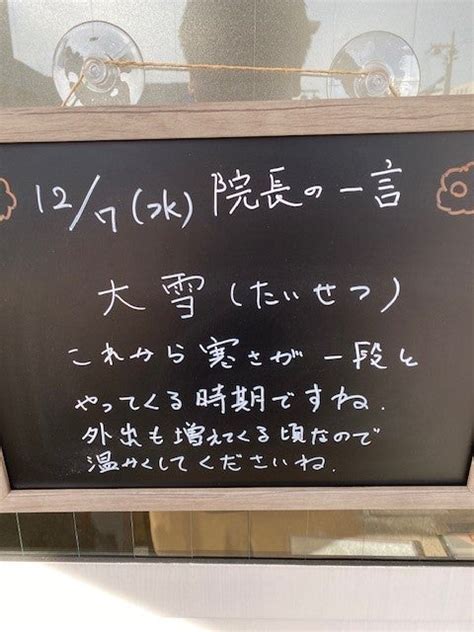 12/7(水) 院長の一言
大雪(たいせつ)
これから寒さが一段と
やってくる時期ですね.
外出も増えてくる頃なので
温かくしてくださいね.